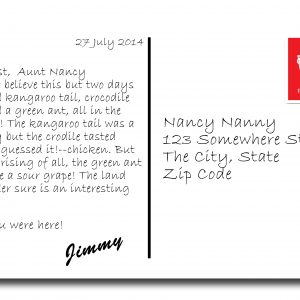 27 July 2014
st, Aunt Nancy
believe this but two days
kangaroo tail, crocodile
a green ant, all in the
! The kangaroo tail was a
but the crodile tasted
guessed it!--chicken. But
rising of all, the green ant
e a sour grape! The land
er sure is an interesting
u were here!
Jimmy
Nancy Nanny
123 Somewhere St
The City, State
Zip Code